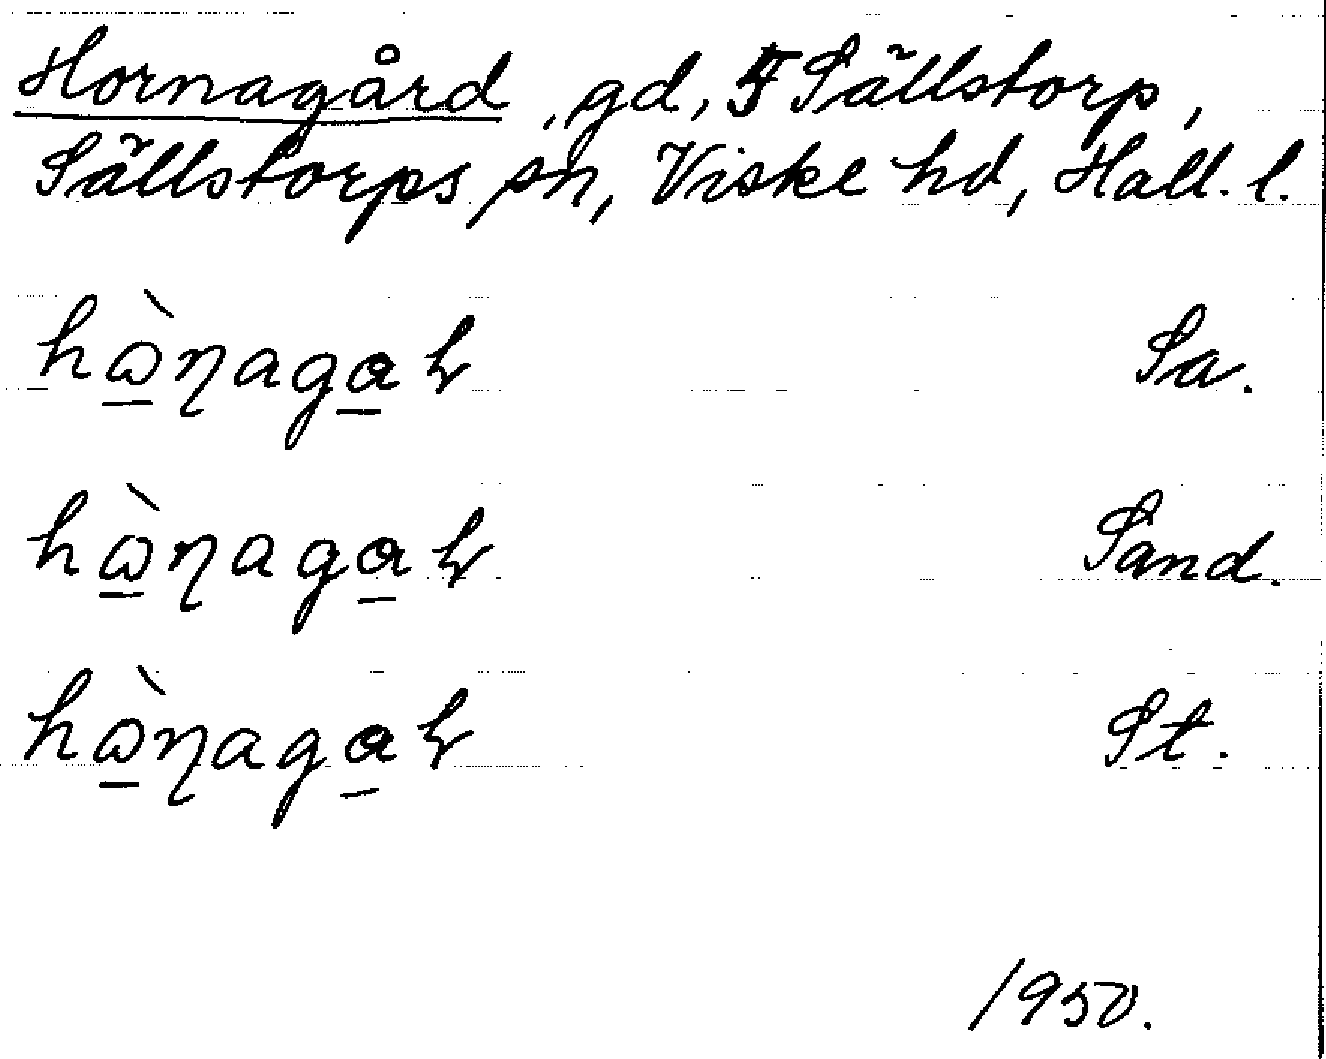 Hornagård, gd, 5 Sällstorp,
Sällstorps sn, Viske hd, Hall. l.
hɷ̠̀ŋaga̠ɦ Sa.
hɷ̠̀ŋaga̠ɦ Sand.
hɷ̠̀ŋaga̠ɦ St.
1950.